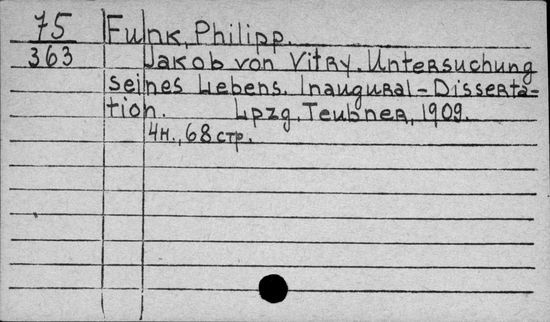 75 Funk, Philipp.
363 Jakob von Vitry. Untersuchung
seines Lebens. Inaugural-Disserta-
tion. Lpzg, Teubner, 1909.
4н., 68 стр.